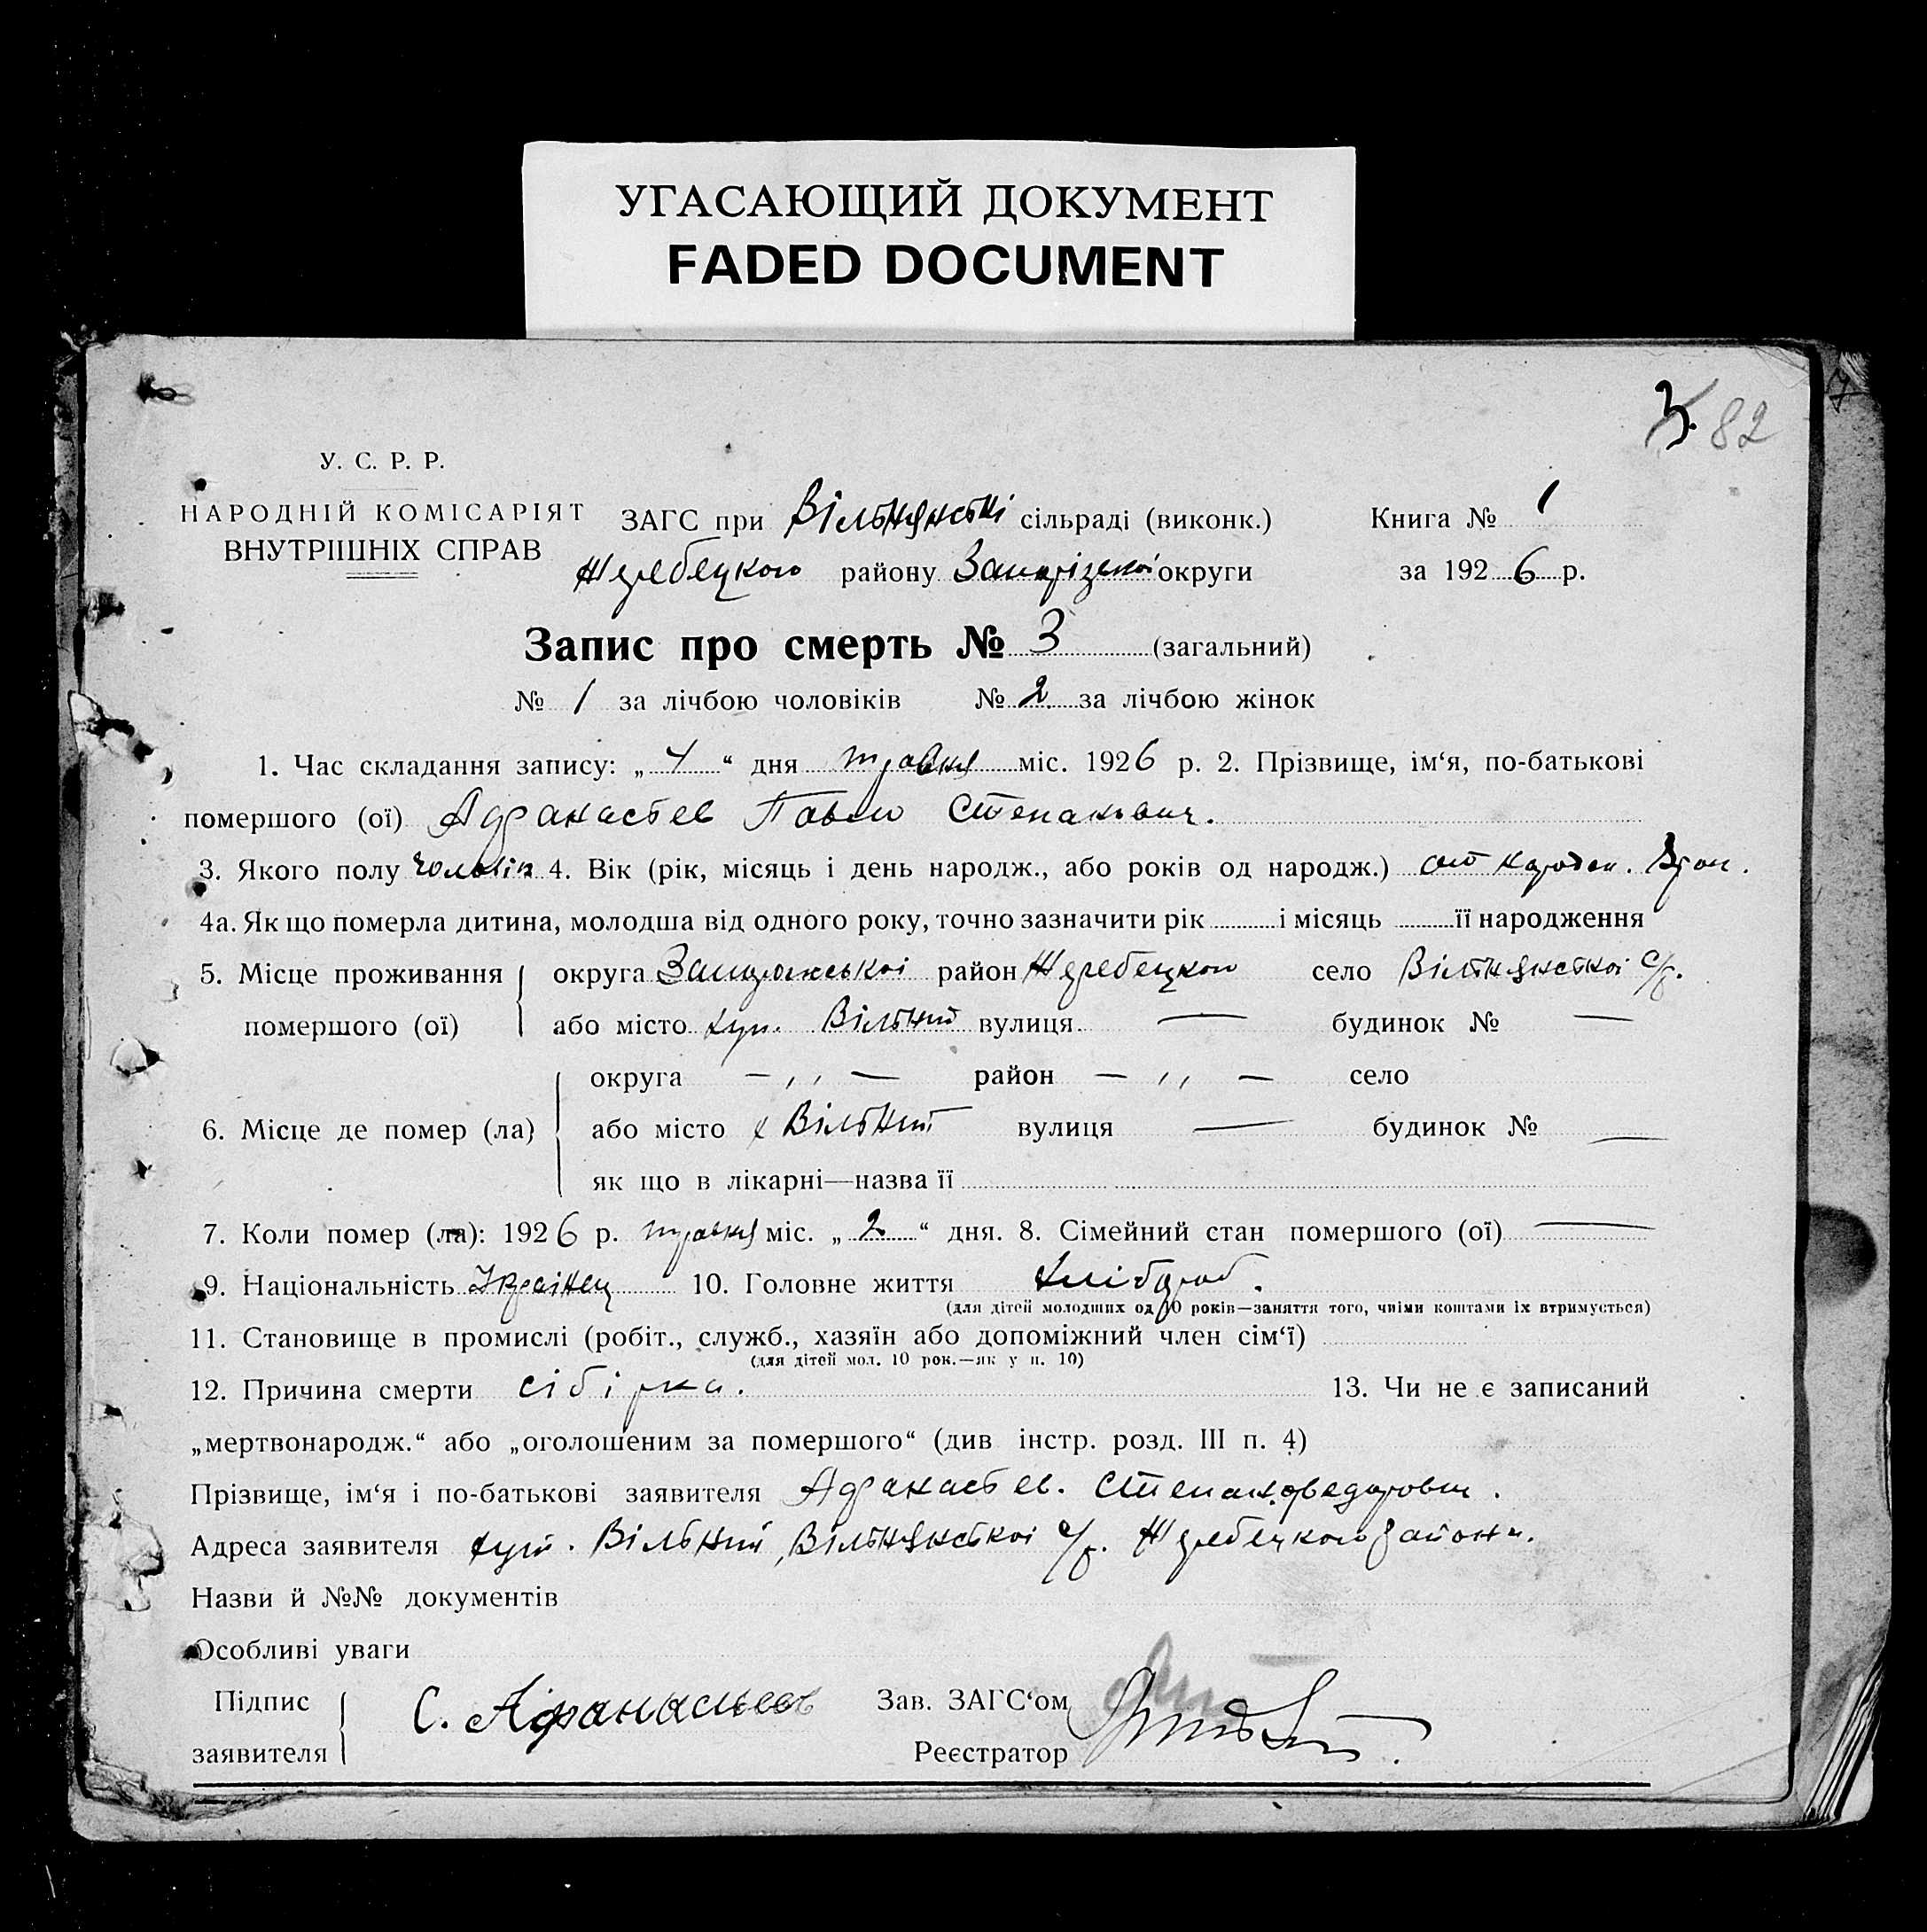 УГАСАЮЩИЙ ДОКУМЕНТ
FADED DOCUMENT
3. 82
У. С. Р. Р.
НАРОДНІЙ КОМІСАРІЯТ
ВНУТРІШНІХ СПРАВ
ЗАГС при Вільнянські сільраді (виконк.) Книга № 1
Жеребецкого району Запорізької округи за 1926 р.
Запис про смерть № 3 (загальний)
№ 1 за лічбою чоловіків № 2 за лічбою жінок
1. Час складання запису: „4“ дня травня міс. 1926 р. 2. Прізвище, ім‘я, по-батькові
помершого (ої) Афанасьев Павло Степанович.
3. Якого полу чоловік 4. Вік (рік, місяць і день народж., або років од народж.) от народж.
4а. Як що померла дитина, молодша від одного року, точно зазначити рік і місяць її народження
5. Місце проживання округа Запорожської район Жеребецкого село Вільнянської с/р.
помершого (ої) або місто хут. Вільний вулиця — будинок № —
округа — ,, — район — ,, — село
6. Місце де помер (ла) або місто х Вільний вулиця — будинок № —
як що в лікарні—назва її
7. Коли помер (ла): 1926 р. травня міс. „2“ дня. 8. Сімейний стан помершого (ої) —
9. Національність Украінец 10. Головне життя хлібороб.
(для дітей молодших од 10 років—заняття того, чиїми коштами їх втримується)
11. Становище в промислі (робіт., служб., хазяїн або допоміжний член сім‘ї)
(для дітей мол. 10 рок.—як у п. 10)
12. Причина смерти сібірка. 13. Чи не є записаний
„мертвонародж.“ або „оголошеним за помершого“ (див інстр. розд. III п. 4)
Прізвище, ім‘я і по-батькові заявителя Афанасьев. Степан Федорович.
Адреса заявителя хут. Вільний, Вільнянської с/р. Жеребецкого району.
Назви й №№ документів
Особливі уваги
Підпис С. Афанасьев Зав. ЗАГС‘ом
заявителя Реєстратор